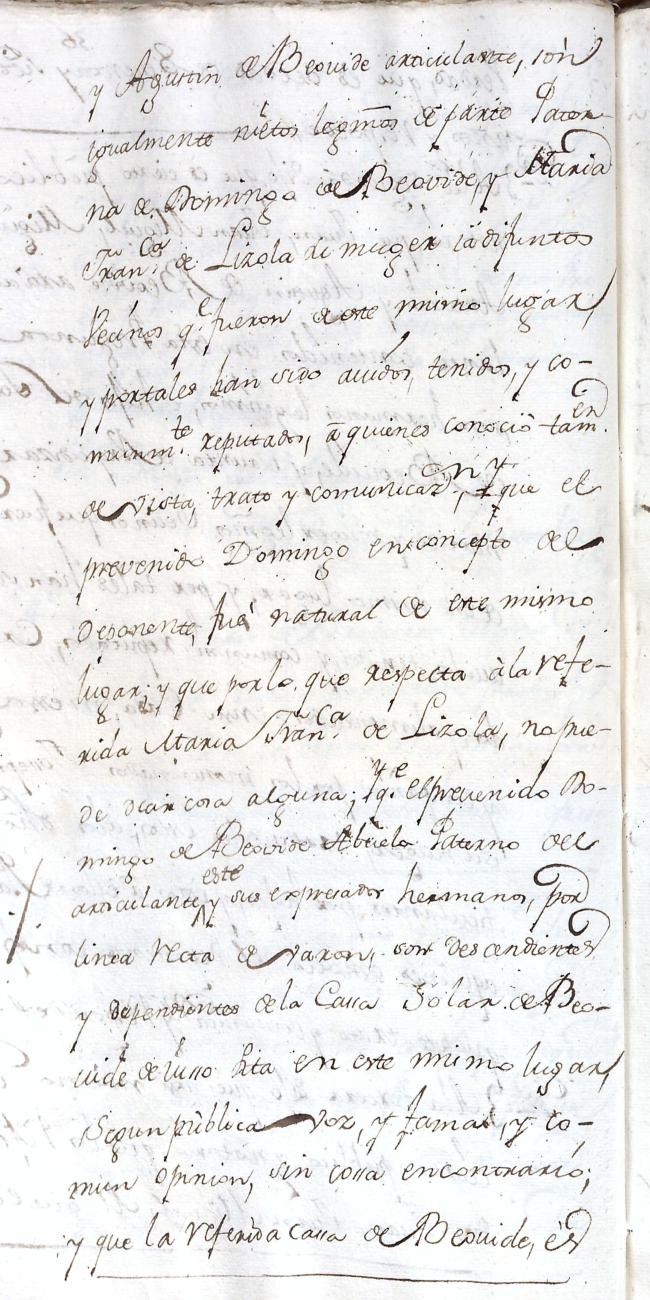 y Agustin de Beovide articulante, són
igualmente nietos legmōs de parte Pater-
na de Domingo de Beovide, y Maria
Franca. de Lizola su muger ia difuntos
Vecinos qe. fueron de este mismo lugar,
y portales han sido avidos, tenidos, y co-
munmte. reputados, a quienes conoció tamen.
de vista, trato y comunicaón, y que el
prevenido Domingo en concepto del
Deponente, fué natural de este mismo
lugar; y que por lo que respecta à la refe-
rida Maria Franca. de Lizola, no pue-
de dezir cosa alguna; y qe. el prevenido Do-
mingo de Beovide Abuelo Paterno del
articulante, este y sus expresados hermanos, por
linea recta de varon, son Descendientes
y dependientes de la Cassa Solar de Beo-
vide de iusso sita en este mismo lugar,
segun pùblica voz, y fama, y co-
mun opinion, sin cossa encontrario;
y que la referida cassa de Beovide, és